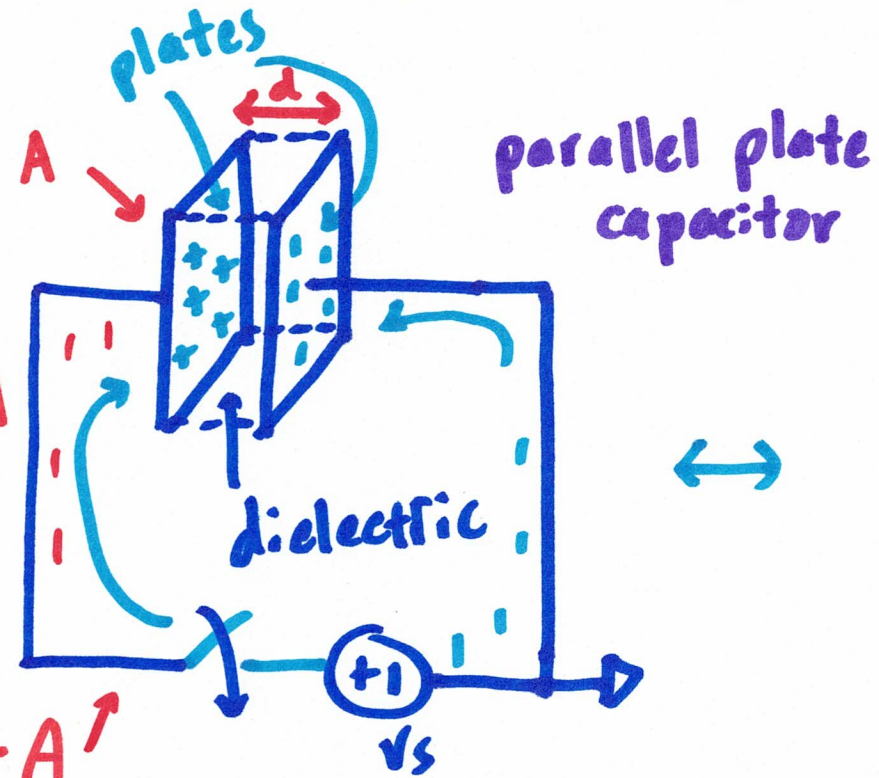 plates
d
A
parallel plate
capacitor
dielectric
+|
Vs
-A